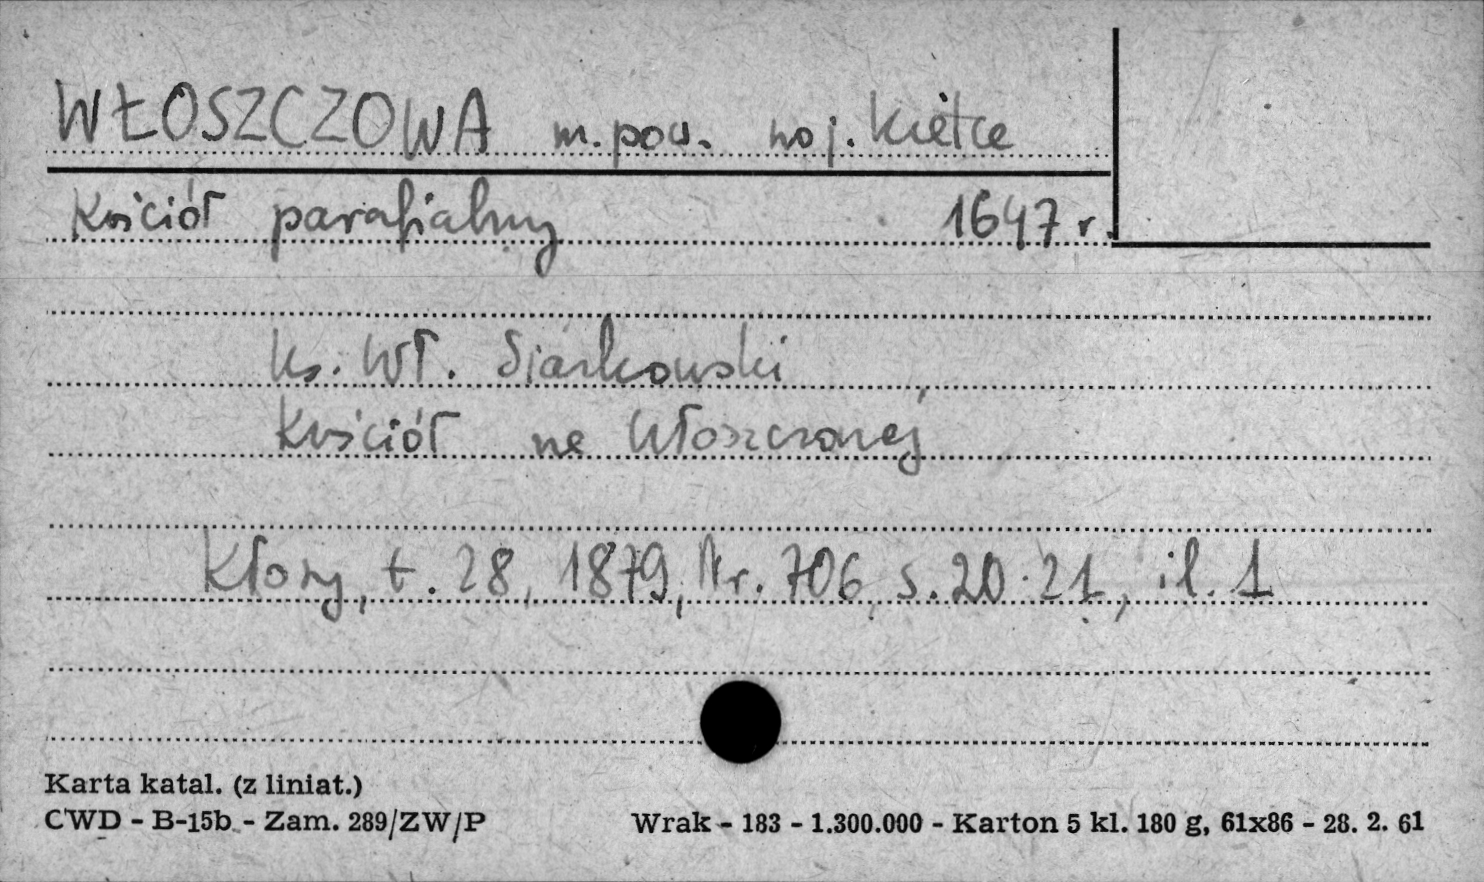 WŁOSZCZOWA m. pow. woj. Kielce
Kościół parafialny 1647 r.
Ks. Wł. Siarkowski
Kościół we Włoszczowej
Kłosy, t. 28, 1879, Nr. 706, s. 20-21, il. 1
Karta katal. (z liniat.)
CWD - B-15b - Zam. 289/ZW/P
Wrak - 183 - 1.300.000 - Karton 5 kl. 180 g, 61x86 - 28. 2. 61